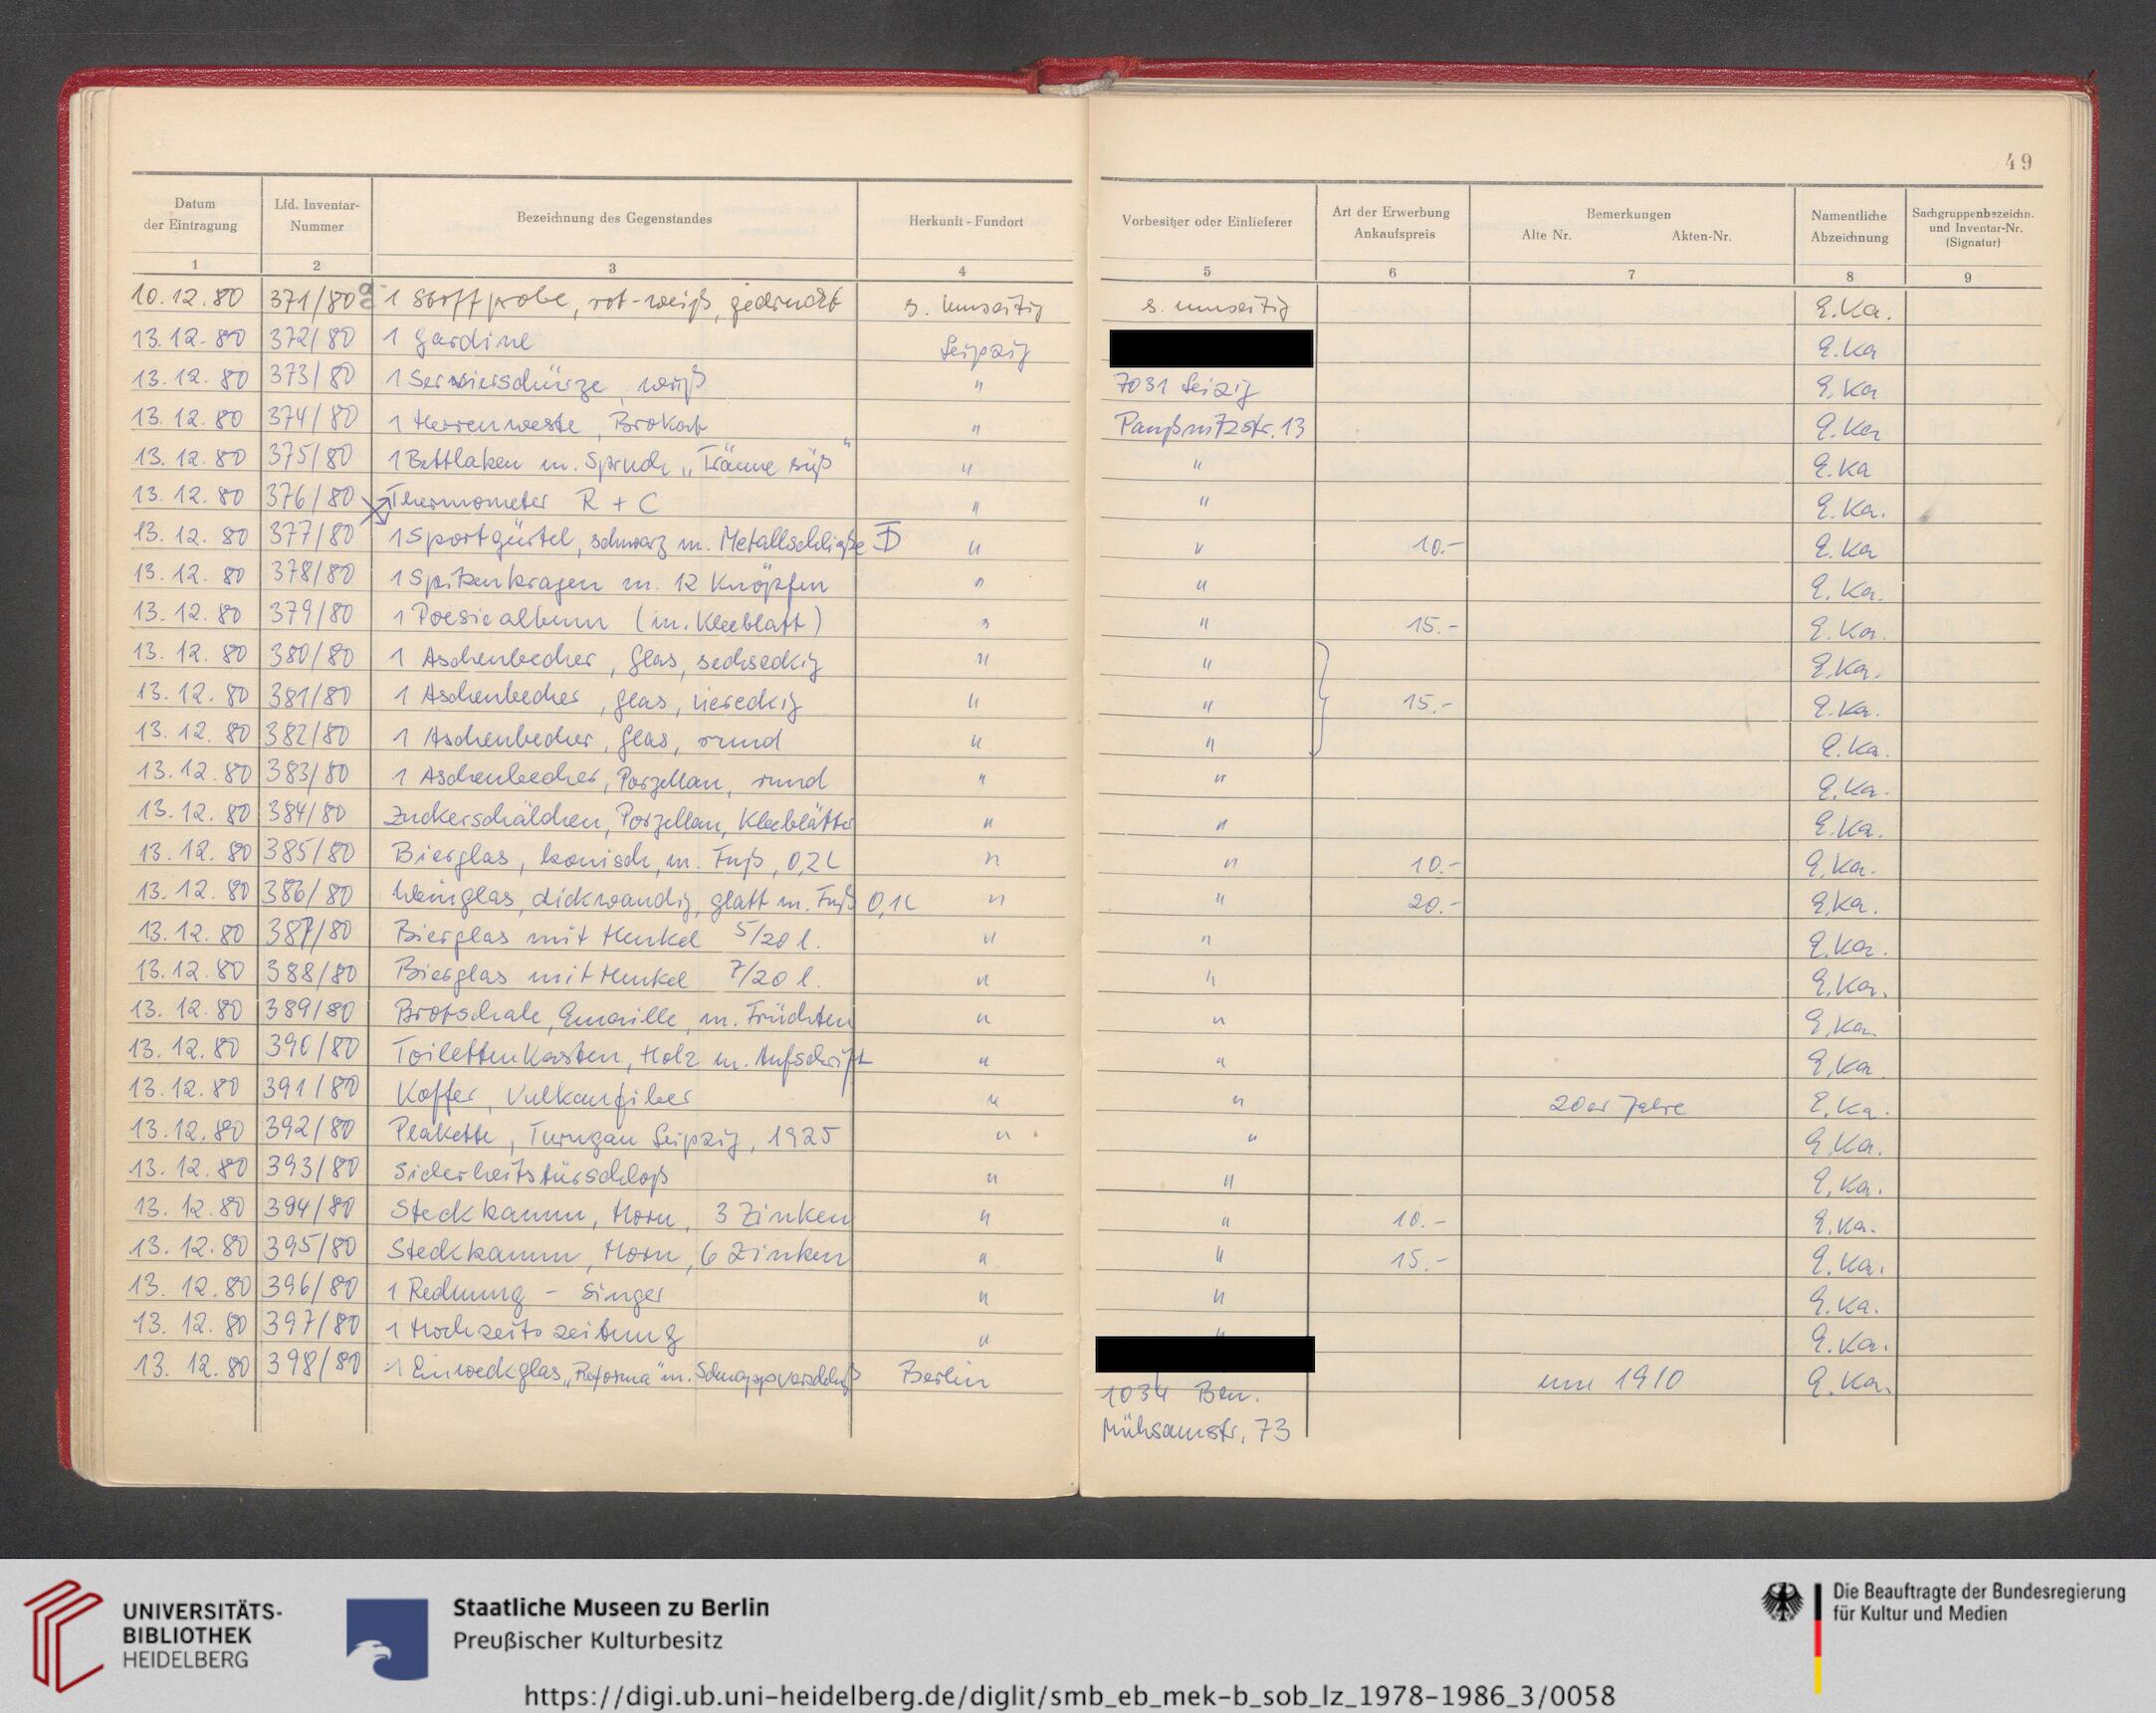 49
Datum der Eintragung | Lfd. Inventar-Nummer | Bezeichnung des Gegenstandes | Herkunft - Fundort | Vorbesitzer oder Einlieferer | Art der Erwerbung Ankaufspreis | Bemerkungen Alte Nr. Akten-Nr. | Namentliche Abzeichnung | Sachgruppenbezeichn. und Inventar-Nr. (Signatur)
1 | 2 | 3 | 4 | 5 | 6 | 7 | 8 | 9
10.12.80 | 371/80 | 1 Stoffprobe, rot-weiß, gedruckt | s. umseitig | s. umseitig | E.Ka.
13.12.80 | 372/80 | 1 Gardine | Leipzig | E.Ka
13.12.80 | 373/80 | 1 Servierschürze, weiß | " | 7031 Leizig | E.Ka
13.12.80 | 374/80 | 1 Herrenweste, Brokat | " | Paußnitzstr. 13 | E.Ka
13.12.80 | 375/80 | 1 Bettlaken m. Spruch „Träume süß" | " | " | E.Ka
13.12.80 | 376/80 | Thermometer R + C | " | " | E.Ka.
13.12.80 | 377/80 | 1 Sportgürtel, schwarz m. Metallschließe | " | " | 10.- | E.Ka
13.12.80 | 378/80 | 1 Spitzenkragen m. 12 Knöpfen | " | " | E.Ka.
13.12.80 | 379/80 | 1 Poesiealbum (m. Kleeblatt) | " | " | 15.- | E.Ka.
13.12.80 | 380/80 | 1 Aschenbecher, Glas, sechseckig | " | " | E.Ka.
13.12.80 | 381/80 | 1 Aschenbecher, Glas, viereckig | " | " | 15.- | E.Ka.
13.12.80 | 382/80 | 1 Aschenbecher, Glas, rund | " | " | E.Ka.
13.12.80 | 383/80 | 1 Aschenbecher, Porzellan, rund | " | " | E.Ka.
13.12.80 | 384/80 | Zuckerschälchen, Porzellan, Kleeblätter | " | " | E.Ka.
13.12.80 | 385/80 | Bierglas, konisch, m. Fuß, 0,2 l | " | " | 10.- | E.Ka.
13.12.80 | 386/80 | Weinglas, dickwandig, glatt m. Fuß 0,1 l | " | " | 20.- | E.Ka.
13.12.80 | 387/80 | Bierglas mit Henkel 5/20 l. | " | " | E.Ka.
13.12.80 | 388/80 | Bierglas mit Henkel 7/20 l. | " | " | E.Ka.
13.12.80 | 389/80 | Brotschale, Emaille, m. Früchten | " | " | E.Ka.
13.12.80 | 390/80 | Toilettenkasten, Holz m. Aufschrift | " | " | E.Ka.
13.12.80 | 391/80 | Koffer, Vulkanfiber | " | " | 20er Jahre | E.Ka.
13.12.80 | 392/80 | Plakette, Turngau Leipzig, 1925 | " | " | E.Ka.
13.12.80 | 393/80 | Sicherheitstürschloß | " | " | E.Ka.
13.12.80 | 394/80 | Steckkamm, Horn, 3 Zinken | " | " | 10.- | E.Ka.
13.12.80 | 395/80 | Steckkamm, Horn, 6 Zinken | " | " | 15.- | E.Ka.
13.12.80 | 396/80 | 1 Rechnung - Singer | " | " | E.Ka.
13.12.80 | 397/80 | 1 Hochzeitszeitung | " | " | E.Ka.
13.12.80 | 398/80 | 1 Einweckglas „Reforma" m. Schnappverschluß | Berlin | um 1910 | E.Ka.
1034 Bln.
Mühsamstr. 73
UNIVERSITÄTS-
BIBLIOTHEK
HEIDELBERG
Staatliche Museen zu Berlin
Preußischer Kulturbesitz
Die Beauftragte der Bundesregierung
für Kultur und Medien
https://digi.ub.uni-heidelberg.de/diglit/smb_eb_mek-b_sob_lz_1978-1986_3/0058